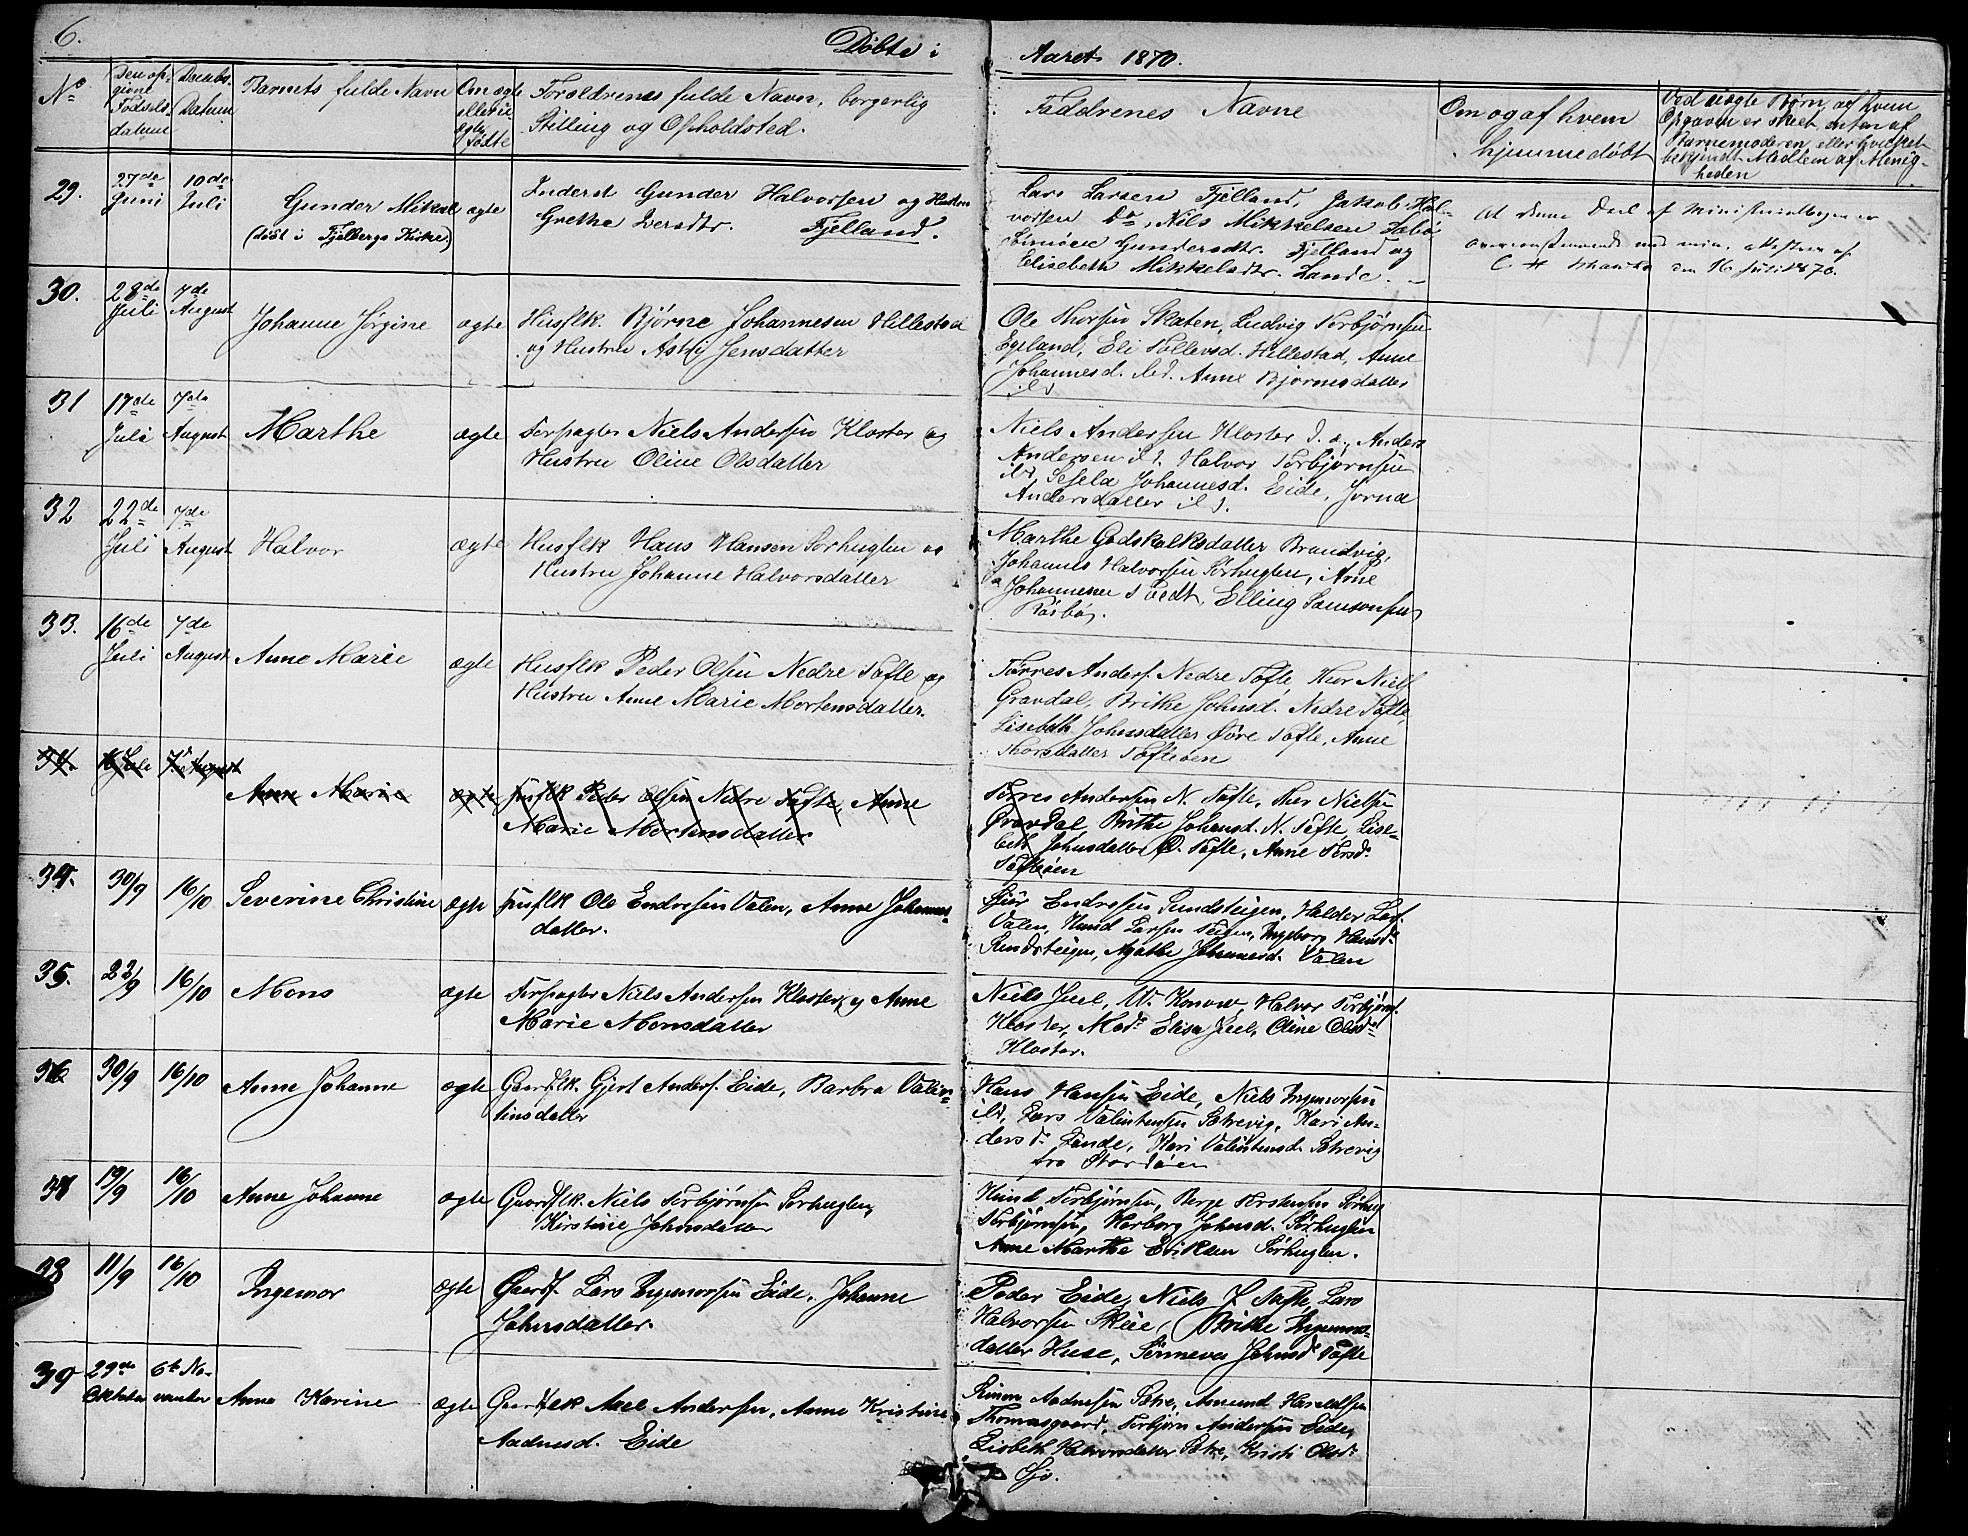 6.
Døbte i Aaret 1870.
No
Den op-
givne
Fødsels
datum
Daabs-
Datum
Barnets fulde Navn
Om ægte
eller u
ægte
Født
Forældrenes fulde Navn, borgerlig
Stilling og Opholdsted.
Faddrenes Navne
Om og af hvem
hjemmedøbt
Ved uægte Børn, af hvem
Opgaven er skeet, enten af
Barnemoderen eller hvilket
bekjendt Medlem af Menig-
heden
29.
27de
Juni
10de
Juli
Gunder Mikal
(døbt i Fjelbergs Kirke)
ægte
Inderst Gunder Halvorsen og Hustru
Grethe Iversdtr. Fjelland.
Lars Larsen Fjelland, Jakob Hal-
vorsen Do, Nils Mikkelsen Sæbø
Gundersdtr. Fjelland og
Elisebeth Mikkelsdtr. Lande.
At denne Deel af Ministerialbogen er
overensstemmende med min, attesteres af
C H den 16 Juli 1870.
30.
28de
Juli
7de
August
Johanne Jørgine
ægte
Husflk. Bjørne Johannesen Hillestad
og Hustru Astri Jensdatter
Ole Thorsen Skaten, Ludvig Torbjørnsen
Egeland, Eli Tollevsd. Hillestad, Anne
Johannesd. ibd. Anne Bjørnesdatter
ibd
31
17de
Juli
7de
August
Marthe
ægte
Forpagter Niels Andersen Kloster og
Hustru Oline Olsdatter
Niels Andersen Kloster d. æ., Anders
Andersen ibd. Halvor Torbjørnsen
ibd, Sesela Johannesd. Eide, Jorna
Andersdatter ibd.
32
22de
Juli
7de
August
Halvor
ægte
Husflk Hans Hansen Sørhuglen og
Hustru Johanne Halvorsdatter
Marthe Godskalksdatter Brandvig,
Johannes Halvorsen Sørhuglen, Arne
Johannesen Tvedt, Elling Samsonsen
33.
16de
Juli
7de
August
Anne Marie
ægte
Husflk Peder Olsen Nedre Tofte og
Hustru Anne Marie Mortensdatter.
Torres Anders. Nedre Tofte, Thor Niels.
Gravdal, Brithe Johnsd. Nedre Tofte,
Lisebeth Johnsdatter Øvre Tofte, Anne
Thorsdatter Tofteøen
34.
16 Juli
7de August
Anne Marie
ægte
Husflk Peder Olsen Nedre Tofte, Anne
Marie Mortensdatter
Torres Andersen N. Tofte, Thor Nielsen
Gravdal, Brithe Johansd. N. Tofte, Lise-
beth Johnsdatter Ø. Tofte, Anne Torsd.
Tofteøen
34.
30/9
16/10
Severine Christine
ægte
Husflk Ole Endresen Valen, Anne Johannes-
datter.
Sjur Endresen Sundsteigen, Halder Lars.
Valen, Knud Larsen Ingeborg Hansd.
Sundsteigen, Agathe Johannesd. Valen
35.
22/9
16/10
Mons
ægte
Forpagter Niels Andersen Kloster og Anne
Marie Monsdatter
Niels Juel, W. Konow, Halvor Torbjørns.
Kloster, Mad. Elisa Juel, Oline Olsdr
Kloster.
36
30/9
16/10
Anne Johanne
ægte
Gaardflk. Gjert Anders. Eide, Barbra Valen-
tinsdatter
Hans Hansen Eide, Niels Ingemorsen
ibd, Lars Valentinsen Sætrevig, Kari An-
dersdr Lande, Kari Valentinsd. Sætrevig
fra Stordøen
37
19/9
16/10
Anne Johanne
ægte
Gaardflk. Niels Torbjørnsen Sørhuglen,
Kirstine Johnsdatter
Knud Torbjørnsen, Berge Torstensen Sørhug
Torbjørnsen, Herborg Johnsd. Sørhuglen
Anne Marthe Eriksen Sørhuglen.
38
11/9
16/10
Ingemor
ægte
Gaardf. Lars Ingemorsen Eide, Johanne
Johnsdatter.
Peder Eide, Niels J Tofte, Lars
Halvorsen Skeie, Brithe Ingemors-
datter Huse, Sønneva Johnsd. Tofte
39
29de
Oktober
6te No-
vember
Anne Karine
ægte
Gaardflk Axel Andersen, Anne Kristine
Aadnesd. Eide
Simon Aadnesen Sætre, Amund Haraldsen
Thomasgaard, Torbjørn Andersen Eide,
Lisbeth Halvorsdatter Sætre, Kristi Olsdr
Sjo.